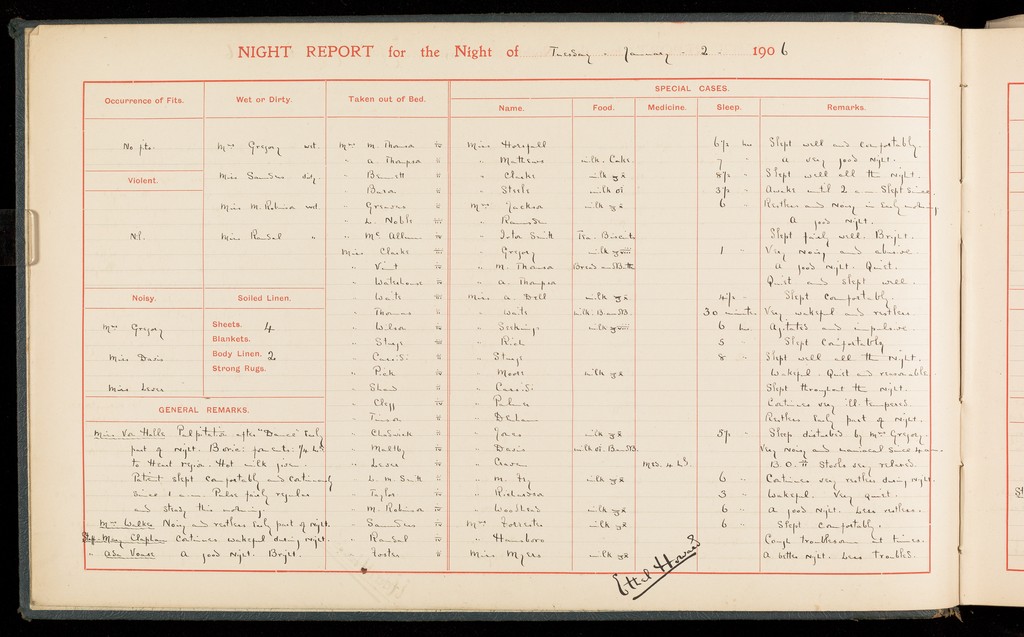 NIGHT REPORT for the Night of Tuesday . January . 2 . 1906
Occurrence of Fits.
No fits.
Violent.
Nil.
Noisy.
Mrs Gregory
Miss Davis
Miss Lever
Wet or Dirty.
Mrs Gregory wet.
Miss Saunders dirty
Miss M. Robinson wet.
Miss Ransal "
Soiled Linen.
Sheets. 4
Blankets.
Body Linen. 2
Strong Rugs.
GENERAL REMARKS.
Miss Von Halle Palpitation after "Dance" Early
part of night. Boric 1/4 hr
to Heart region. Hot milk given.
Patient slept comfortably and continuously
since 1 a.m. Pulse fairly regular
and steady this morning.
Mrs Walker Noisy and restless Early part of night.
Mary Clapham Continues wakeful during night.
" Ada Vouse A good night. Bright.
Taken out of Bed.
Mrs M. Thomson
" A. Thompson
" Bennett
" Baron
" Greaves
" L. Noble
" McAllum
Miss Clarke
" Vint
" Waterhouse
" Waite
" Thomas
" Wilson
" Sturge
" Cassidi
" Pick
" Shaw
" Clegg
" Tinson
" Chadwick
" Maltby
" Lever
" L. M. Smith
" Taylor
" M. Robinson
" Saunders
" Ransal
" Foster
SPECIAL CASES.
Name. Food. Medicine. Sleep. Remarks.
Miss Horsfall 6½ hrs Slept well and comfortably.
" Mathews milk. Cake 7 " A very good night.
" Clarke milk 8½ " Slept well all the night.
" Steele milk 3½ " Awake until 2 a.m. Slept since.
Mrs Jackson milk 6 " Restless and Noisy in Early morning
" Ramsden A good night.
" Smith Tea. Biscuits Slept fairly well. Bright.
" Gregory milk 1 " Very Noisy and abusive.
" M. Thomson Bread and Butter A good night. Quiet.
" A. Thompson Quiet and slept well.
Miss A. Bell milk 4½ " Slept comfortably.
" Waite milk. B and B. 30 minutes Very wakeful and restless.
" milk 6 hrs. Agitated and impulsive.
" Rich 5 " Slept Comfortably
" Sturge 8 " Slept well all the night.
" Moore milk Wakeful. Quiet and reasonable
" Cassidi Slept throughout the night.
" Palmer Continues very ill-tempered.
" Denham Restless Early part of night.
" Jones milk 5½ " Sleep disturbed by Mrs Gregory.
" Davis milk B and B. Very Noisy and maniacal since 4 a.m.
" Craven B.O. ii Stools very relaxed.
" M. Fry milk 6 " Continues very restless during night.
" Richardson 3 " Wakeful. Very quiet.
" Woodhead milk 6 " A good night. Less restless.
Mrs Forrester milk 6 " Slept comfortably.
" Hansboro Cough troublesome at times.
Miss Myers milk A better night. Less troubled.
Ethel Howard